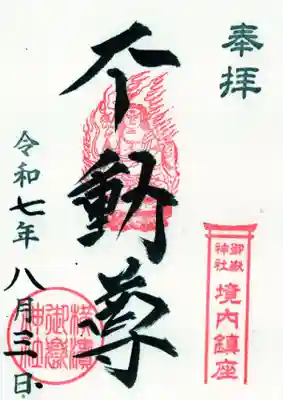 奉拝
不動尊
御嶽神社
境内鎮座
令和七年八月三日
横濱御嶽神社